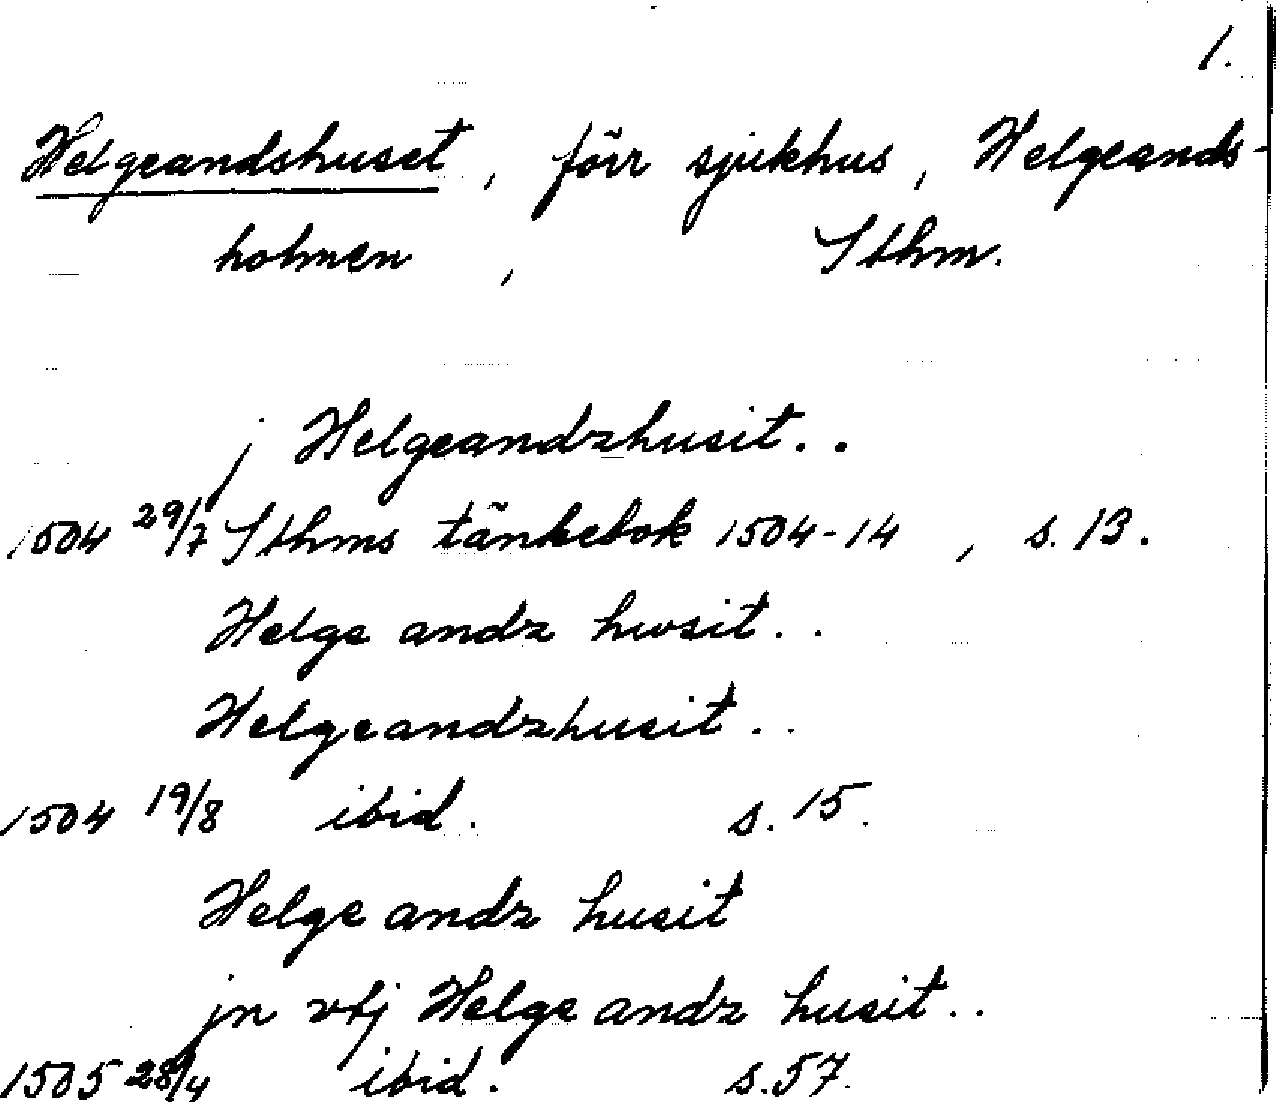 1.
Helgeandshuset, förr sjukhus, Helgeands-
holmen, Sthm.
j Helgeandzhusit..
1504 29/7 Sthms tänkebok 1504-14, s. 13.
Helge andz hwsit..
Helgeandzhusit..
1504 19/8 ibid. s. 15.
Helge andz husit
jn vtj Helge andz husit..
1505 28/4 ibid. s. 57.